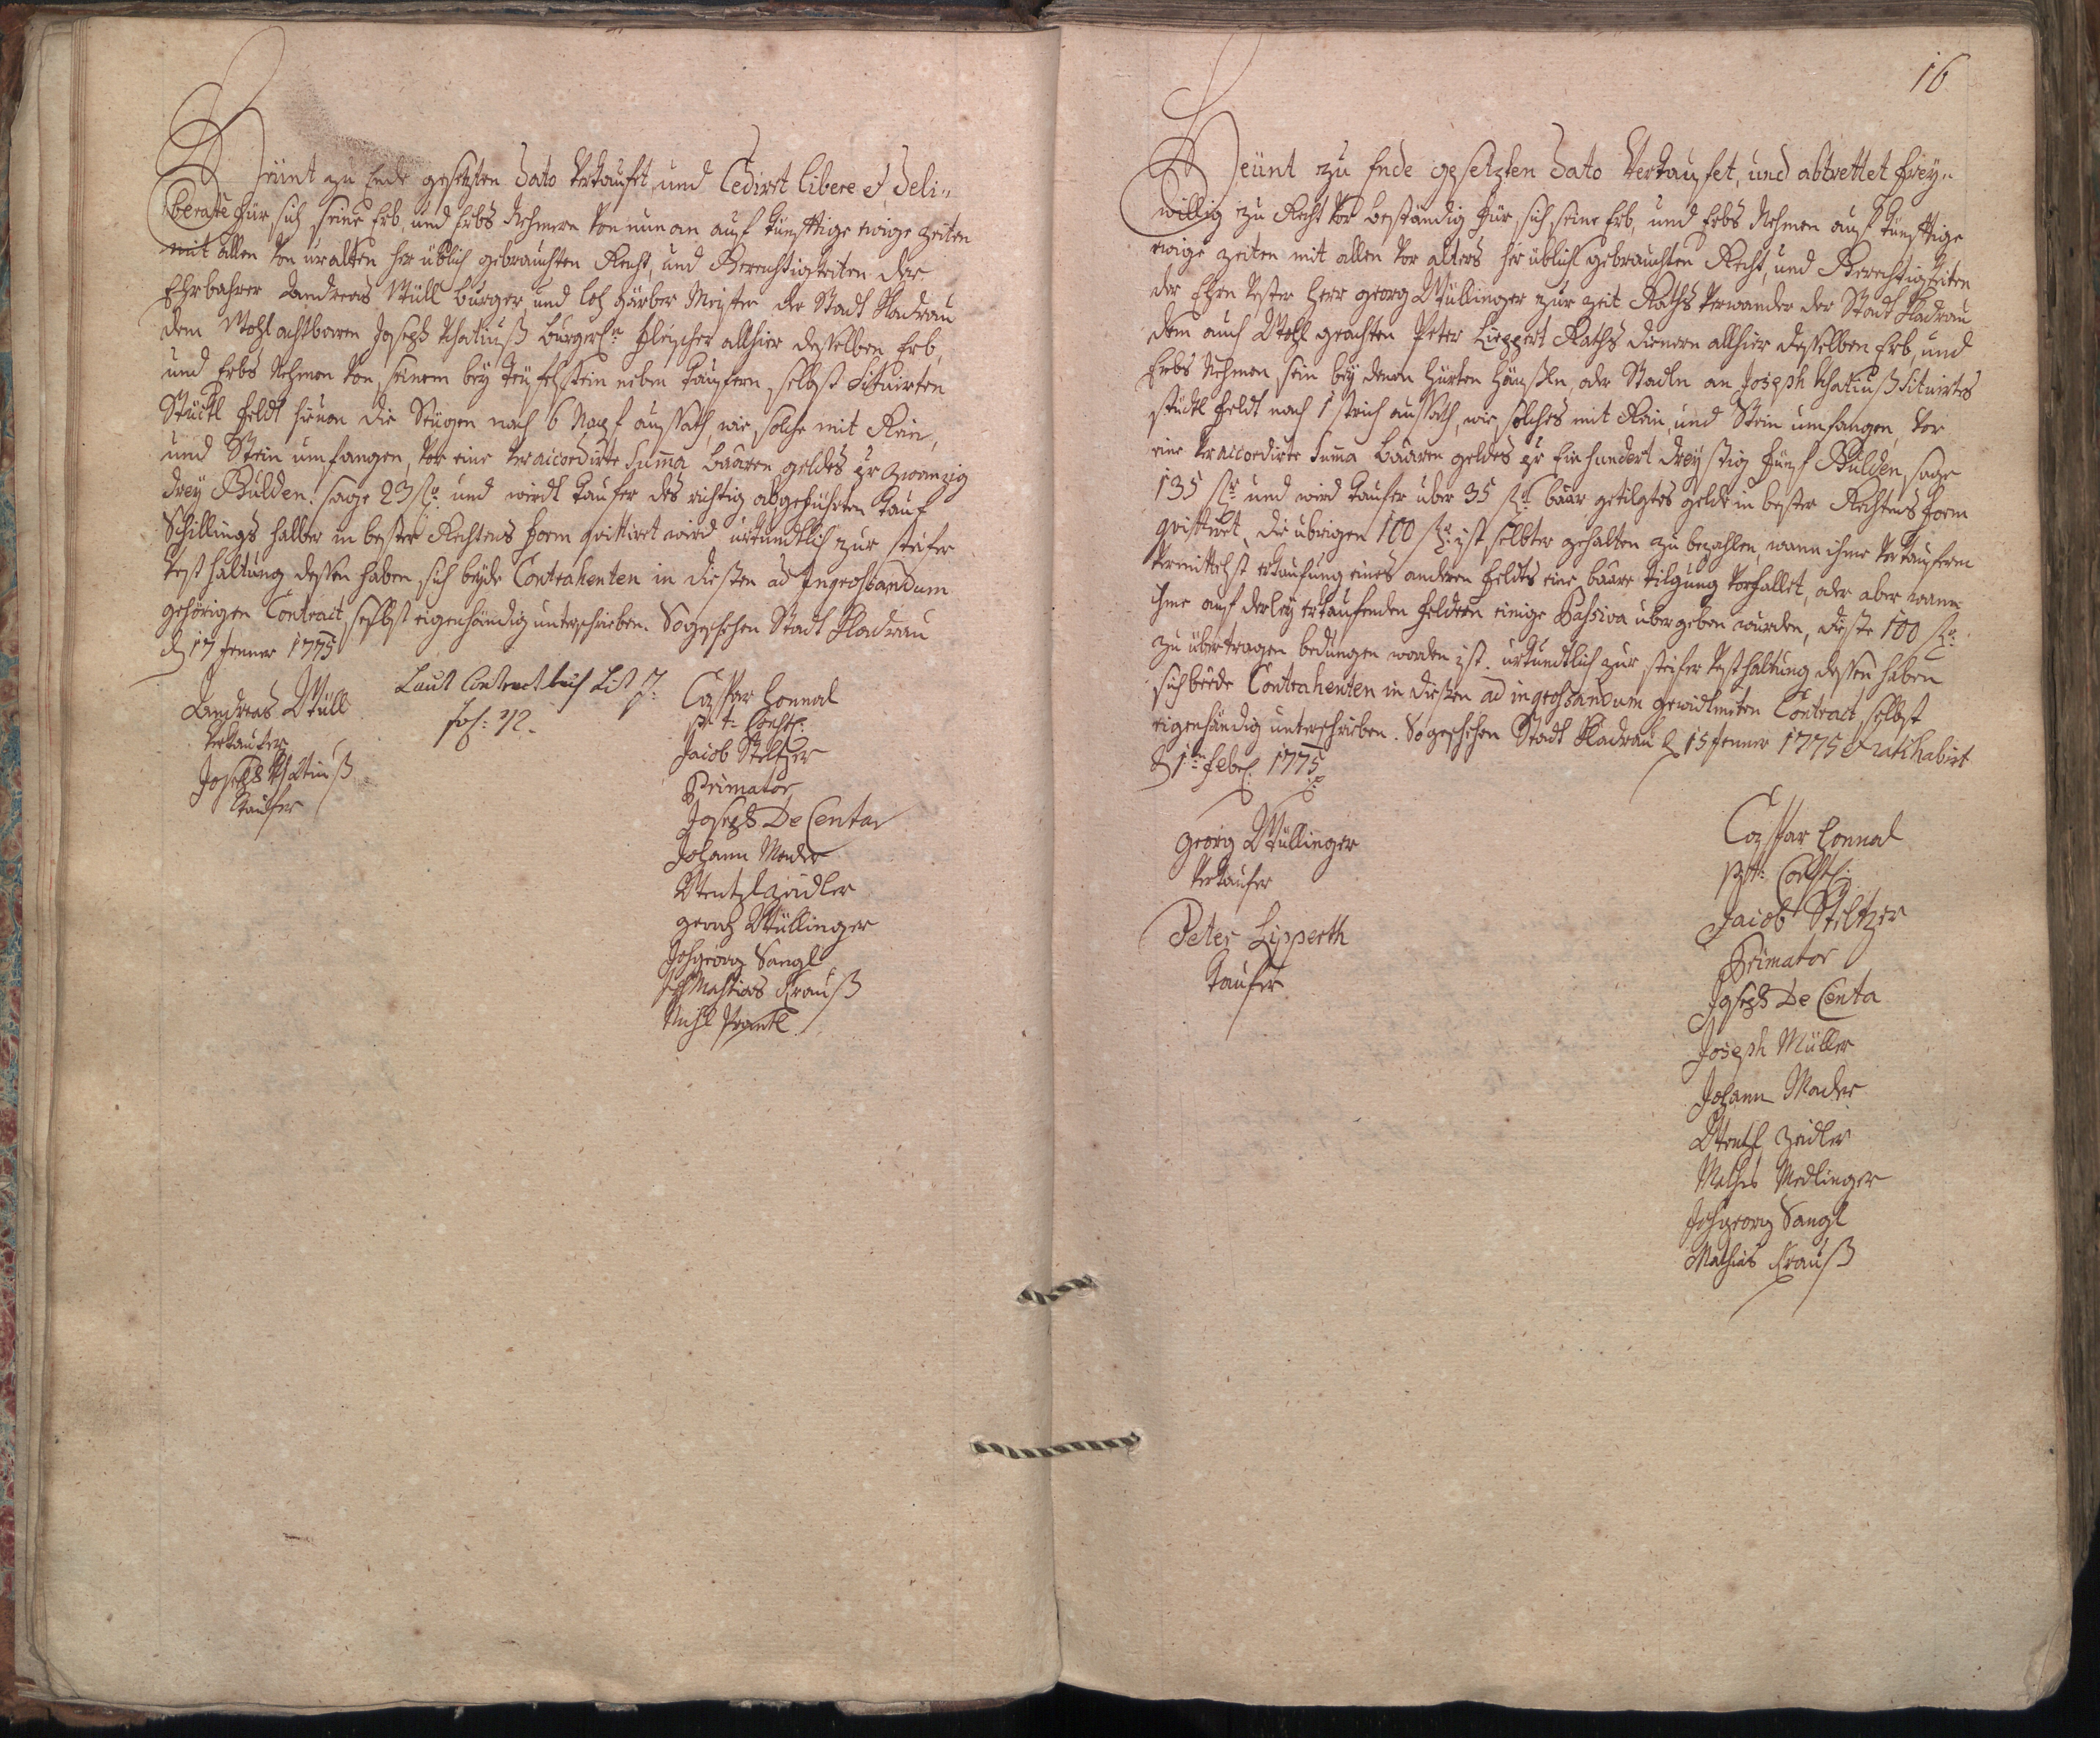 Heünt zu Ende gesetzten Dato Verkaufet, und Cediret libere et deli-
berate für sich seine Erb, und Erbs Nehmern von nun an auf künfftige ewige Zeiten
mit allen von uralten her üblich gebrauchten Recht, und Gerechtigkeiten der
Ehrbahrer Andreas Wüll burger und loh gärber Meister der Stadt Kladrau
dem Wohl achtbaren Joseph burgerln fleischer allhier desselben Erb,
und Erbs Nehmern von seinem bey neben kaufern selbst Situirten
Stückl feldt die nach 6 Napf aussath, wie solche mit Rein,
und Stein umfangen, vor eine veraccordirte Summa baaren geldes pr zwanzig
drey Gulden: sage 23 fl und wirdt kaufer des richtig abgeführten kauf
Schillings halber in bester Rechtens form quittiret wird uhrkundtlich zur steifer
Vest haltung dessen haben sich beyde Contrahenten in diesten ad Ingrossandum
gehörigen Contract selbst eigenhändig unterschrieben. So geschehen Stadt Kladrau
d 17 Jenner 1775
Laut Contract buch Lit J:
fol: 72.
Andreas Wüll
Verkaufer
Joseph
Kaufer
Caspar Honnal
p. t.
Jacob Steltzer
Primator
Joseph De Centa
Johann Mader
Wentzl Zeidler
georg Wüllinger
Joh georg Sangl
Joh Mathias Krauß
Michl
16
Heünt zu Ende gesetzten Dato Verkaufet, und abtrettet frey-
willig zu Recht vor beständig für sich, seine Erb, und Erbs Nehmern auf künfftige
ewige Zeiten mit allen vor alters her üblich gebrauchten Recht, und Gerechtigkeiten
der Ehren Vester Herr georg Wüllinger zur zeit Raths Verwander der Stadt Kladrau
dem auch Wohl geachten Peter Lieppert Raths dienern allhier desselben Erb, und
Erbs Nehmern, sein bey denen Häußln, oder Stadln an Joseph Situirtes
stückl feldt nach 1 strich aussath, wie solches mit Rein, und Stein umfangen, vor
eine veraccordirte Summa baaren geldes pr Ein hundert dreystig fünf Gulden, sage
135 fl und wird kaufer über 35 fl baar getilgtes geldt in bester Rechtens form
quittiret, die übrigen 100 fl ist selbter gehalten zu bezahlen, wann ihme Verkaufern
Vermittelst erkaufung eines anderen feldts eine baare tilgung vorfallet, oder aber wann
ihme auf derley erkaufenden feldern einige Passiva übergeben wurden, dieste 100 fl
zu übertragen bedungen worden ist. uhrkundtlich zur steifer Vest haltung dessen haben
sich beede Contrahenten in diesten ad ingrossandum gewidmeten Contract selbst
eigenhändig unterschrieben. So geschehen Stadt Kladrau d 15 Jenner 1775 et ratihabirt
d 1ten Feb: 1775
georg Wüllinger
Verkaufer
Peter Lipperth
Kaufer
Caspar Honnal
p. t.
Jacob Steltzer
Primator
Joseph De Centa
Joseph Müller
Johann Mader
Wentzl Zeidler
Mathes Medlinger
Joh georg Sangl
Mathias Krauß